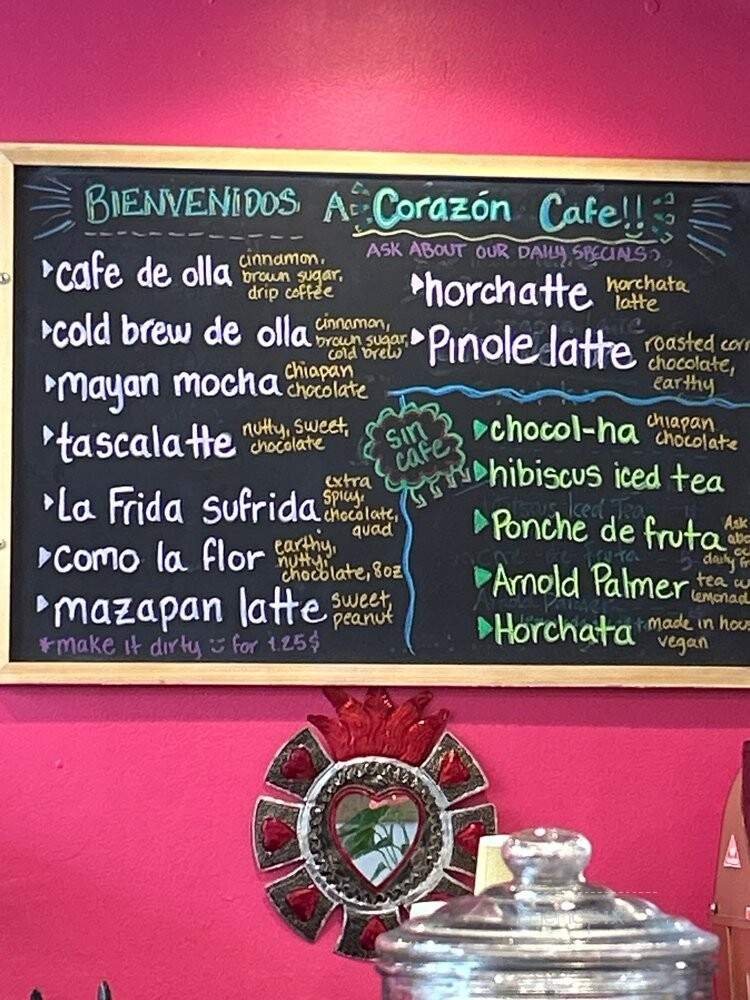 BIENVENIDOS A Corazón Cafe!!
ASK ABOUT OUR DAILY SPECIALS
cafe de olla
cinnamon,
brown sugar,
drip coffee
cold brew de olla
cinnamon,
brown sugar,
cold brew
mayan mocha
chiapan
chocolate
tascalatte
nutty, sweet,
chocolate
La Frida sufrida
extra
spicy,
chocolate,
quad
como la flor
earthy,
nutty,
chocolate, 8oz
mazapan latte
sweet,
peanut
*make it dirty for 1.25$
horchatte
horchata
latte
Pinole latte
roasted corn
chocolate,
earthy
sin
cafe
chocol-ha
chiapan
chocolate
hibiscus iced tea
Ponche de fruta
Ask
daily
Arnold Palmer
tea
lemonad
Horchata
made in hous
vegan